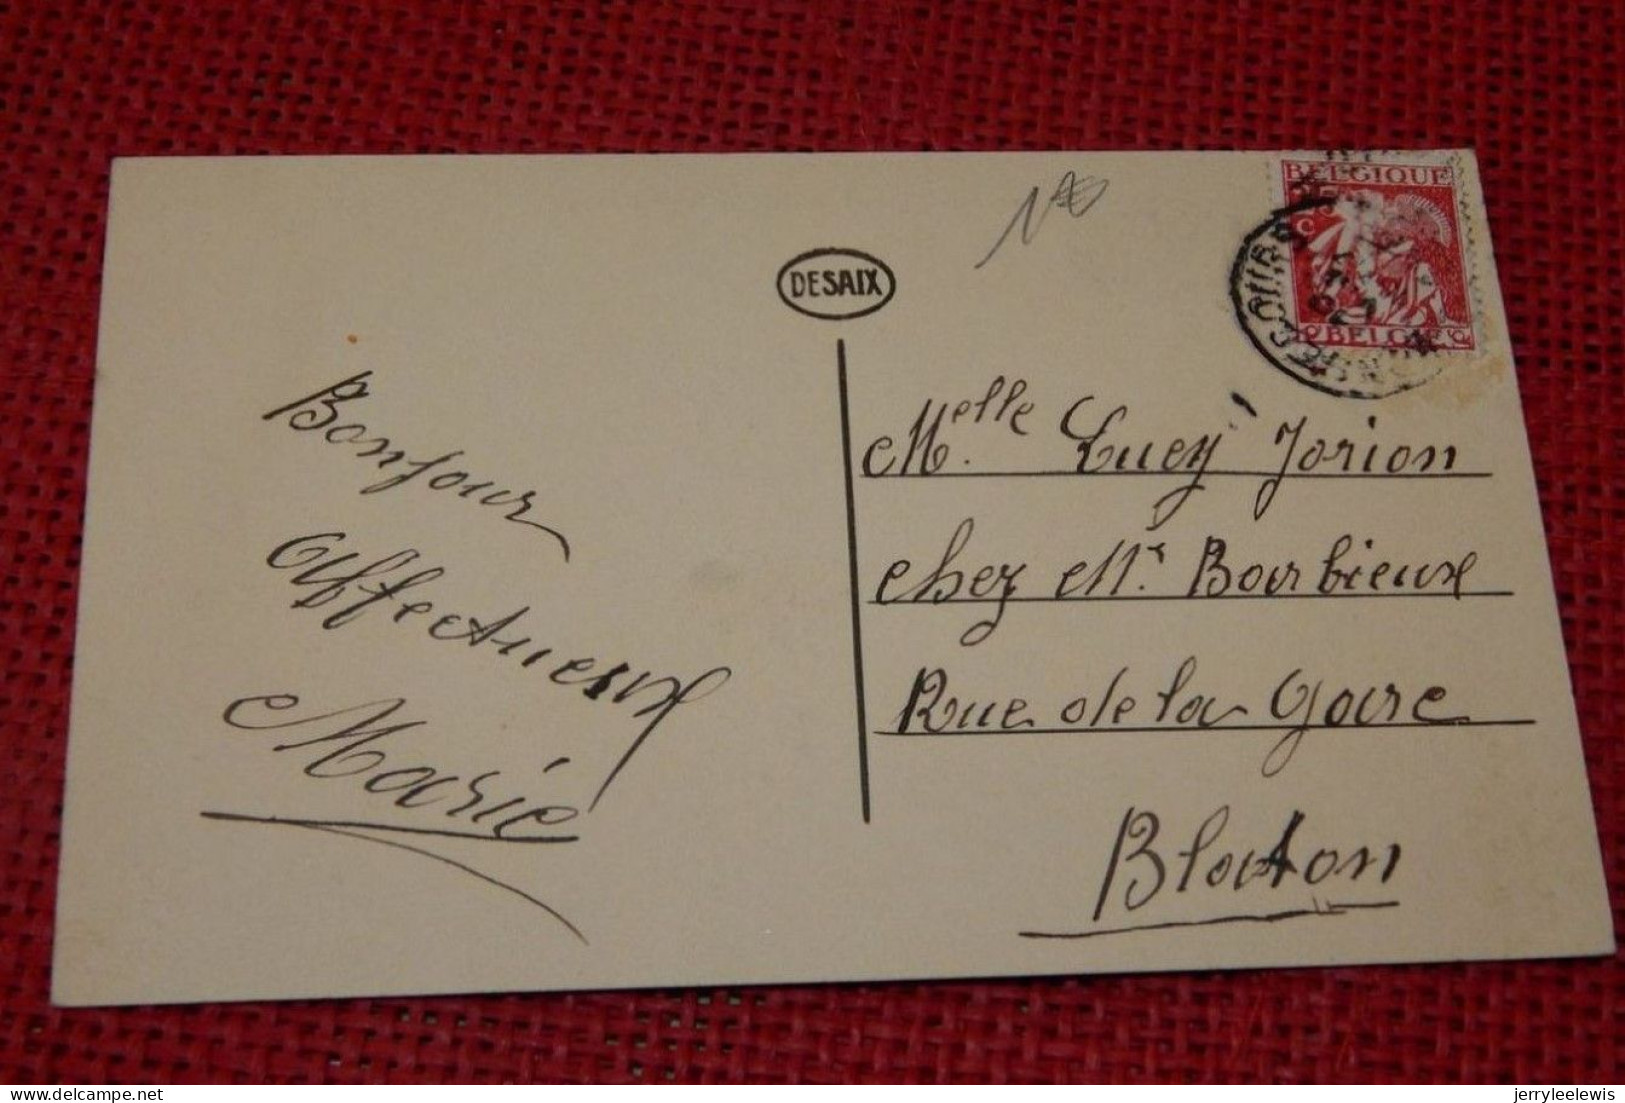 DESAIX
BELGIQUE
BELGIE
BONSECOURS
Bonjour
Affectueux
Marie
Melle Lucy Jorion
chez Mr. Bourbieux
Rue de la Gare
Blaton
jerryleelewis